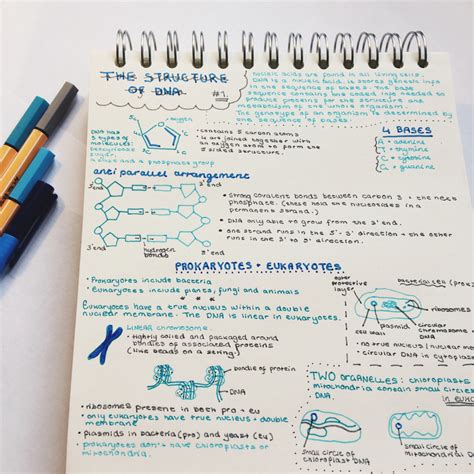 THE STRUCTURE
OF DNA
#1.
nucleic acids are found in all living cells.
DNA is a nucleic acid. It stores genetic info
in the sequence of bases. The base
sequence contains the coded info needed to
produce proteins for the structure and
metabolism of the whole organism.
The genotype of an organism is determined by
the sequence of bases.
DNA has
3 types of
molecules:
Deoxyribose
sugar,
a base and a phosphate group
oxygen
contains 5 carbon atoms
4 are joined together with
an oxygen atom to form the
5 sided structure.
4 BASES
A = adenine
T = thymine
C = cytosine
G = guanine
anti parallel arrangement
5' end
3' end
3' end
5' end
hydrogen
bonds
• strong covalent bonds between carbon 3 + the next
phosphate. (these hold the nucleotides in a
permanent strand.)
• DNA only able to grow from the 3' end.
• one strand runs in the 5'-3' direction + the other
runs in the 3' to 5' direction.
PROKARYOTES + EUKARYOTES
• Prokaryotes include bacteria
• Eukaryotes include plants, fungi and animals
Eukaryotes have a true nucleus within a double
nuclear membrane. The DNA is linear in eukaryotes.
LINEAR chromosome
• tightly coiled and packaged around
bundles of associated proteins
(like beads on a string).
bundle of protein
DNA
• ribosomes present in both pro + eu
• only eukaryotes have true nucleus + double
membrane
• plasmids in bacteria (pro) and yeast (eu)
• prokaryotes don't have chloroplasts or
mitochondria.
outer
protective
layer
cell wall
plasmid
circular
chromosome of
DNA
• no true nucleus / nuclear
• circular DNA in cytoplasm
TWO ORGANELLES: chloroplasts
mitochondria contain small circles
in
small circle of
chloroplast DNA
small circle of